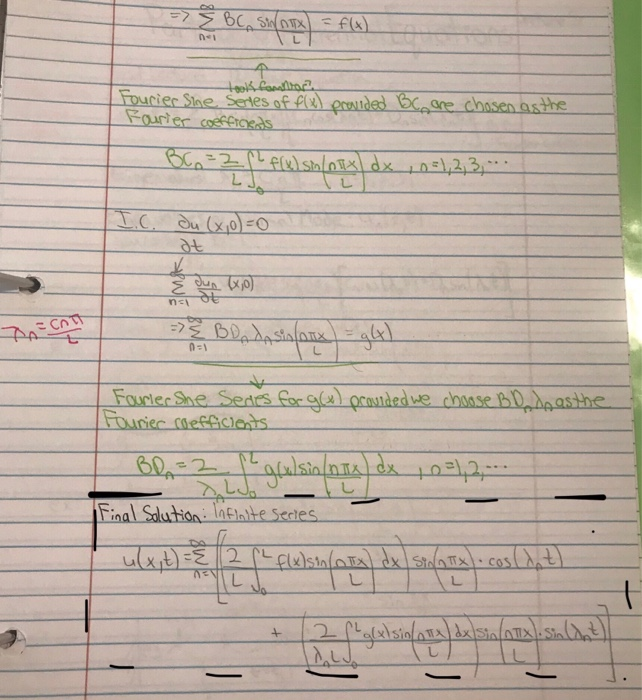 => ∞ Σ n=1 BCₙ sin(nπx/L) = f(x)
↑
looks familiar?
Fourier Sine Series of f(x) provided BCₙ are chosen as the
Fourier coefficients
BCₙ = 2/L ∫₀ᴸ f(x) sin(nπx/L) dx , n=1,2,3,...
I.C. ∂u/∂t (x,0)=0
↓
∞ Σ n=1 ∂uₙ/∂t (x,0)
λₙ = cnπ/L
=> ∞ Σ n=1 BDₙ λₙ sin(nπx/L) = g(x)
↓
Fourier Sine Series for g(x) provided we choose BDₙλₙ as the
Fourier coefficients
BDₙ = 2/(λₙL) ∫₀ᴸ g(x) sin(nπx/L) dx , n=1,2,...
Final Solution: Infinite series
u(x,t) = ∞ Σ n=1 [(2/L ∫₀ᴸ f(x) sin(nπx/L) dx) sin(nπx/L) · cos(λₙt)
+ (2/(λₙL) ∫₀ᴸ g(x) sin(nπx/L) dx) sin(nπx/L) · sin(λₙt)].